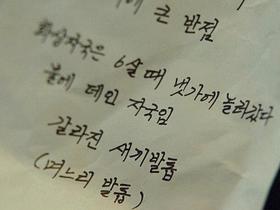 에 큰 반점
화상자국은 6살때 냇가에 놀러갔다
불에 데인 자국임
갈라진 새끼발톱
(며느리 발톱)